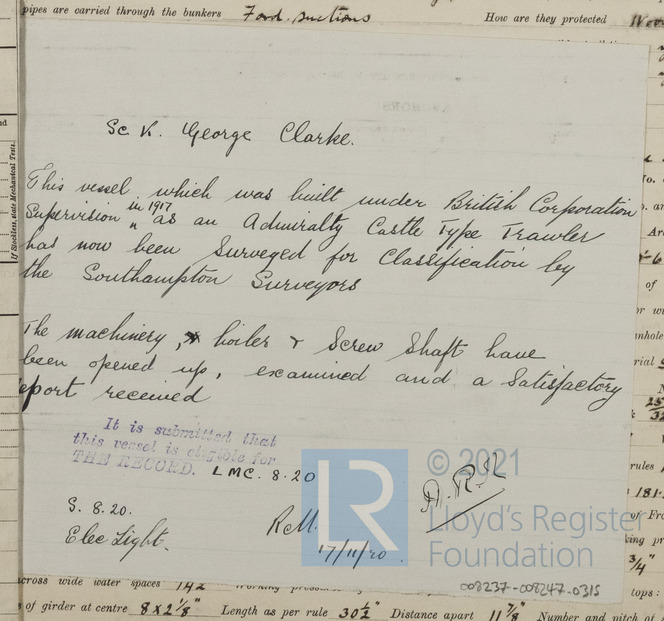 pipes are carried through the bunkers Ford. suctions How are they protected
Sc K. George Clarke.
This vessel, which was built under British Corporation
Supervision in 1917 as an Admiralty Castle Type Trawler
has now been Surveyed for Classification by
the Southampton Surveyors
The machinery, boiler & Screw Shaft have
been opened up, examined and a Satisfactory
eport received
It is submitted that
this vessel is eligible for
THE RECORD. LMC. 8.20
S. 8.20.
Elec Light.
RCM.
17/11/20
© 2021
Lloyd's Register
Foundation
LR
008237-008247-0315
across wide water spaces 142 Working
of girder at centre 8 x 2 1/8" Length as per rule 30 1/2" Distance apart 11 7/8" Number and pitch of
If Stockless, state Mechanical Tests.